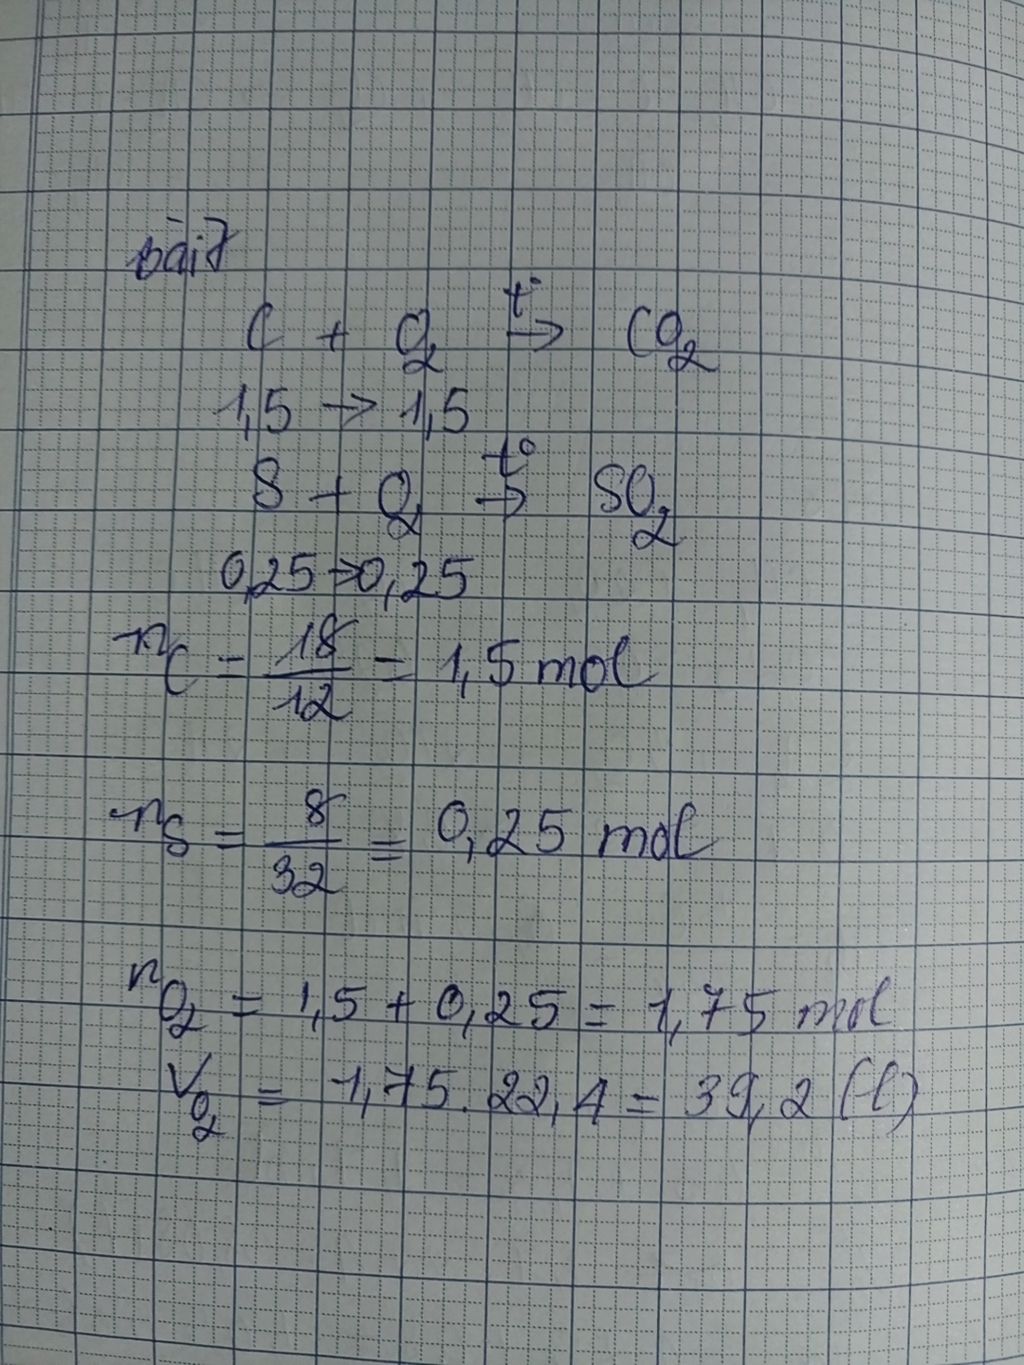 bài 7
C + O₂ t° → CO₂
1,5 → 1,5
S + O₂ t° → SO₂
0,25 → 0,25
nC = 18/12 = 1,5 mol
nS = 8/32 = 0,25 mol
nO₂ = 1,5 + 0,25 = 1,75 mol
VO₂ = 1,75 . 22,4 = 39,2 (l)